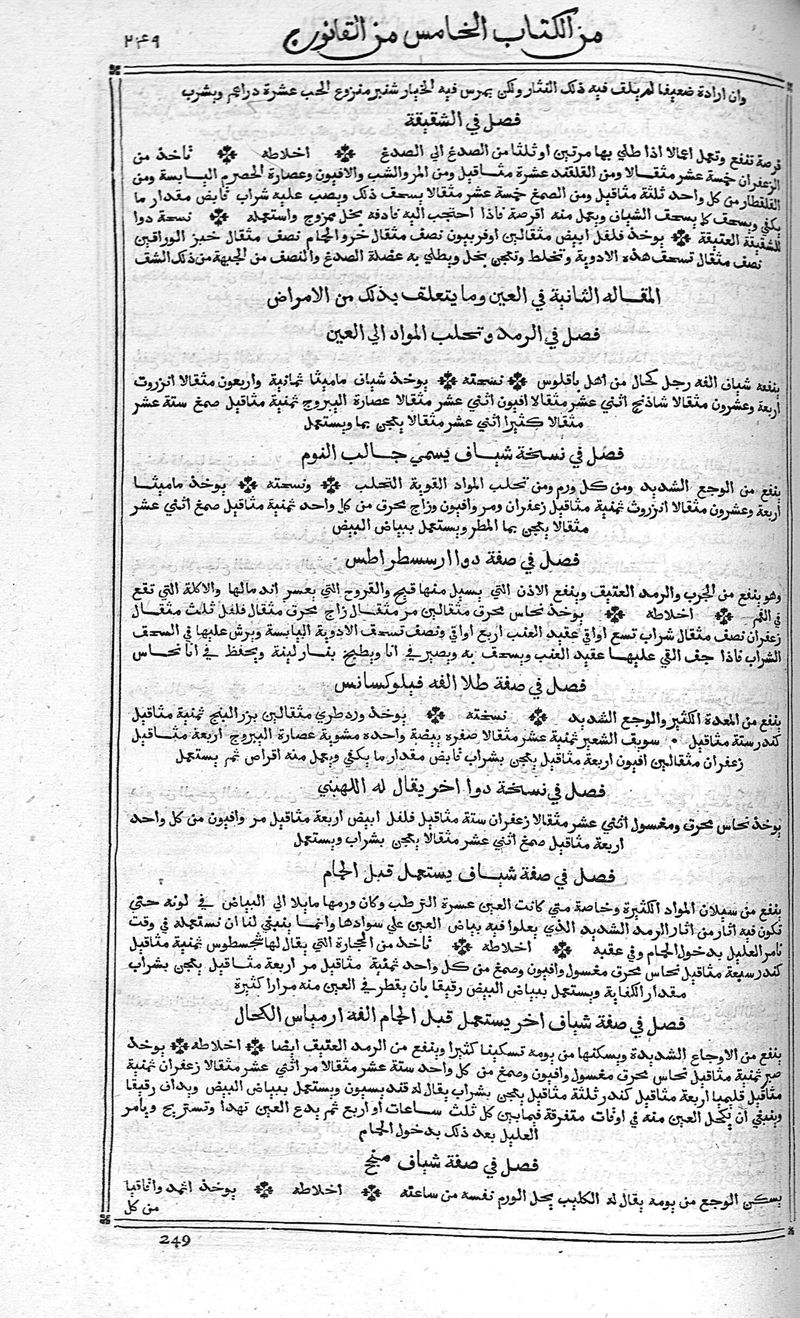 ٢٤٩
من الكتاب الخامس من القانون
وان ارادة ضعيفا لم يلف فيه ذلك النثار ولكن يمرس فيه الخيار شنبر منزوع الحب عشرة دراهم ويشرب
فصل في الشقيقة
قرصة تنفع وتعمل اعمالا اذا طلي بها مرتين او ثلثا من الصدغ الى الصدغ اخلاطه ناخذ من
الزعفران خمسة عشر مثقالا ومن القلقند عشرة مثاقيل ومن المر والشب والافيون وعصارة الحصرم اليابسة ومن
القلقطار من كل واحد ثلثة مثاقيل ومن الصمغ خمسة عشر مثقالا يسحف ذلك ويصب عليه شراب قابض مقدار ما
يكفي ويسحف كما يسحف الشياف ويعمل منه اقرصة فاذا احتجب اليه فادفه بخل ممزوج واستعمله نسخة دوا
للشقيقة العتيقة يوخذ فلفل ابيض مثقالين اوفربيون نصف مثقال خرو الحمام نصف مثقال خبز الوراقين
نصف مثقال تسحف هذه الادوية وتخلط وتعجن بخل ويطلي به عضلة الصدغ والنصف من الجبهة من ذلك الشف
المقاله الثانية في العين وما يتعلف بذلك من الامراض
فصل في الرمد وتحلب المواد الى العين
ينفعه شياف الفه رجل كحال من اهل باقلوس نسخته يوخذ شياف ماميثا ثمانية واربعون مثقالا انزروت
اربعة وعشرون مثقالا شاذنج اثني عشر مثقالا افيون اثني عشر مثقالا عصارة اليبروج ثمنية مثاقيل صمغ ستة عشر
مثقالا كثيرا اثني عشر مثقالا يعجن بما ويستعمل
فصل في نسخة شياف يسمي جالب النوم
ينفع من الوجع الشديد ومن كل ورم ومن تحلب المواد القوية التحلب ونسخته يوخذ ماميثا
اربعة وعشرون مثقالا انزروت ثمنية مثاقيل زعفران ومر وافيون وزاج محرق من كل واحد ثمنية مثاقيل صمغ اثني عشر
مثقالا يعجن بما المطر ويستعمل ببياض البيض
فصل في صفة دوا ارسسطراطس
وهو ينفع من الجرب والرمد العتيف وينفع الاذن التي يسيل منها قيح والقروح التي يعسر اندمالها والاكلة التي تقع
في الفم اخلاطه يوخذ نحاس محرق مثقالين مر مثقال زاج محرق مثقال فلفل ثلث مثقال
زعفران نصف مثقال شراب تسع اواقي عقيد العنب اربع اواقي ونصف تسحف الادوية اليابسة ويرش عليها في السحف
الشراب فاذا جف القي عليها عقيد العنب ويسحف به ويصير في انا ويطبخ بنار لينة ويحفظ في انا نحاس
فصل في صفة طلا الفه فيلوكسانس
ينفع من المعدة الكثير والوجع الشديد نسخته يوخذ ورد طري مثقالين بزر البنج ثمنية مثاقيل
كندر ستة مثاقيل سويف الشعير ثمنية عشر مثقالا صفره بيضة واحده مشوية عصارة اليبروج اربعة مثاقيل
زعفران مثقالين افيون اربعة مثاقيل يعجن بشراب قابض مقدار ما يكفي ويعمل منه اقراص ثم يستعمل
فصل في نسخة دوا اخر يقال له اللهيني
يوخذ نحاس محرق ومغسول اثني عشر مثقالا زعفران ستة مثاقيل فلفل ابيض اربعة مثاقيل مر وافيون من كل واحد
اربعة مثاقيل صمغ اثني عشر مثقالا يعجن بشراب ويستعمل
فصل في صفة شياف يستعمل قبل الحمام
ينفع من سيلان المواد الكثيرة وخاصة متي كانت العين عسرة الترطب وكان ورمها مايلا الى البياض في لونه حتي
تكون فيه اثار من اثار الرمد الشديد الذي يعلوا فيه بياض العين علي سوادها وانما ينبغي لنا ان نستعمله في وقت
نامر العليل بدخول الحمام وفي عقبه اخلاطه ناخذ من الحجارة التي يقال لها شحسطوس ثمنية مثاقيل
كندر سبعة مثاقيل نحاس محرق مغسول وافيون وصمغ من كل واحد ثمنية مثاقيل مر اربعة مثاقيل يعجن بشراب
مقدار الكفاية ويستعمل ببياض البيض رقيقا بان يقطر في العين منه مرارا كثيرة
فصل في صفة شياف اخر يستعمل قبل الحمام الفه ارمياس الكحال
ينفع من الاوجاع الشديدة ويسكنها من يومه تسكينا كثيرا وينفع من الرمد العتيف ايضا اخلاطه يوخذ
صبر ثمنية مثاقيل نحاس محرق مغسول وافيون وصمغ من كل واحد ستة عشر مثقالا مر اثني عشر مثقالا زعفران ثمنية
مثاقيل قليميا اربعة مثاقيل كندر ثلثة مثاقيل يعجن بشراب يقال له قنديسيون ويستعمل ببياض البيض ويداف رقيقا
وينبغي ان يكحل العين منه في اوقات متفرقة فيما بين كل ثلث ساعات او اربع ثم يدع العين تهدا وتستريح ويامر
العليل بعد ذلك بدخول الحمام
فصل في صفة شياف منجح
يسكن الوجع من يومه يقال له الكليب يحل الورم نفسه من ساعته اخلاطه يوخذ اثمد واقاقيا
من كل
249